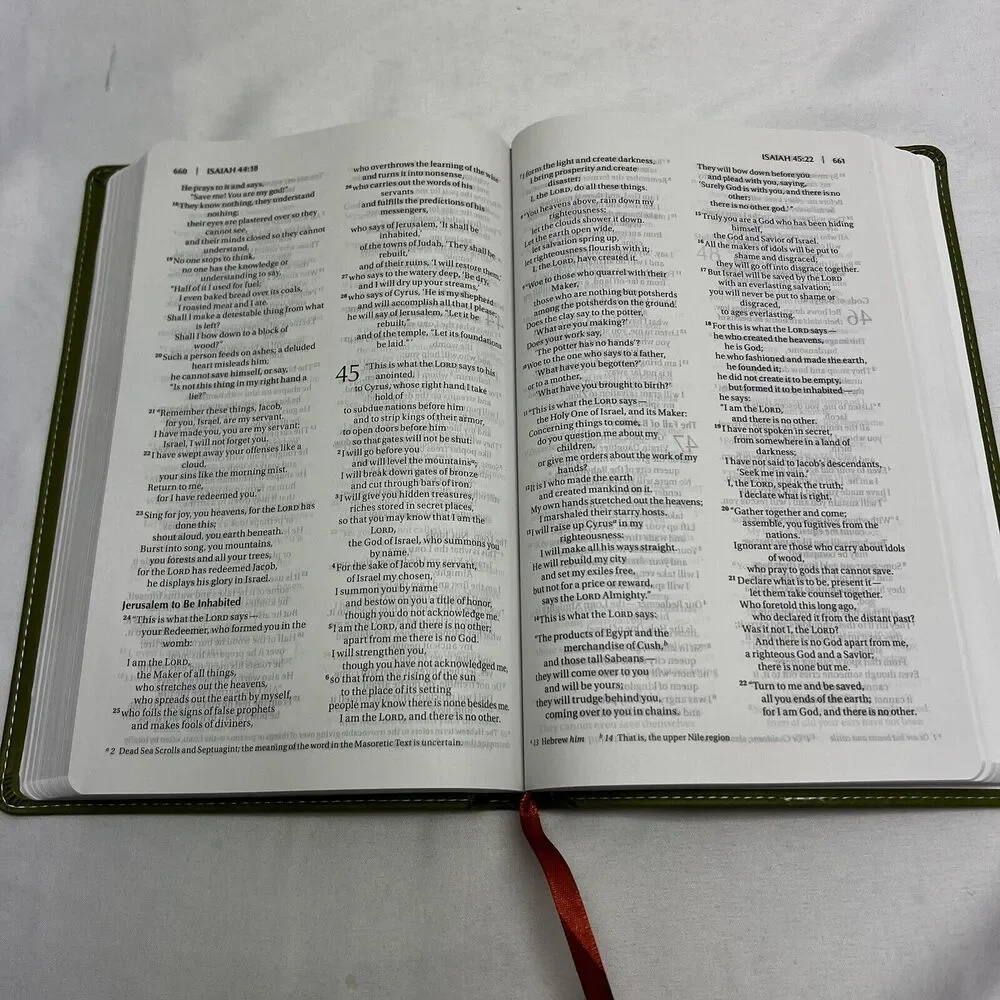 660 | ISAIAH 44:18
He prays to it and says,
"Save me! You are my god!"
18 They know nothing, they understand
nothing;
their eyes are plastered over so they
cannot see,
and their minds closed so they cannot
understand.
19 No one stops to think,
no one has the knowledge or
understanding to say,
"Half of it I used for fuel;
I even baked bread over its coals,
I roasted meat and I ate.
Shall I make a detestable thing from what
is left?
Shall I bow down to a block of
wood?"
20 Such a person feeds on ashes; a deluded
heart misleads him;
he cannot save himself, or say,
"Is not this thing in my right hand a
lie?"
21 "Remember these things, Jacob,
for you, Israel, are my servant.
I have made you, you are my servant;
Israel, I will not forget you.
22 I have swept away your offenses like a
cloud,
your sins like the morning mist.
Return to me,
for I have redeemed you."
23 Sing for joy, you heavens, for the LORD has
done this;
shout aloud, you earth beneath.
Burst into song, you mountains,
you forests and all your trees,
for the LORD has redeemed Jacob,
he displays his glory in Israel.
Jerusalem to Be Inhabited
24 "This is what the LORD says—
your Redeemer, who formed you in the
womb:
I am the LORD,
the Maker of all things,
who stretches out the heavens,
who spreads out the earth by myself,
25 who foils the signs of false prophets
and makes fools of diviners,
who overthrows the learning of the wise
and turns it into nonsense,
26 who carries out the words of his
servants
and fulfills the predictions of his
messengers,
who says of Jerusalem, 'It shall be
inhabited,'
of the towns of Judah, 'They shall be
rebuilt,'
and of their ruins, 'I will restore them,'
27 who says to the watery deep, 'Be dry,
and I will dry up your streams,'
28 who says of Cyrus, 'He is my shepherd
and will accomplish all that I please;
he will say of Jerusalem, "Let it be
rebuilt,"
and of the temple, "Let its foundations
be laid."'
45 "This is what the LORD says to his
anointed,
to Cyrus, whose right hand I take
hold of
to subdue nations before him
and to strip kings of their armor,
to open doors before him
so that gates will not be shut:
2 I will go before you
and will level the mountains a;
I will break down gates of bronze
and cut through bars of iron.
3 I will give you hidden treasures,
riches stored in secret places,
so that you may know that I am the
LORD,
the God of Israel, who summons you
by name.
4 For the sake of Jacob my servant,
of Israel my chosen,
I summon you by name
and bestow on you a title of honor,
though you do not acknowledge me.
5 I am the LORD, and there is no other;
apart from me there is no God.
I will strengthen you,
though you have not acknowledged me,
6 so that from the rising of the sun
to the place of its setting
people may know there is none besides me.
I am the LORD, and there is no other.
a 2 Dead Sea Scrolls and Septuagint; the meaning of the word in the Masoretic Text is uncertain.
ISAIAH 45:22 | 661
I form the light and create darkness,
I bring prosperity and create
disaster;
I, the LORD, do all these things.
8 "You heavens above, rain down my
righteousness;
let the clouds shower it down.
Let the earth open wide,
let salvation spring up,
let righteousness flourish with it;
I, the LORD, have created it.
9 "Woe to those who quarrel with their
Maker,
those who are nothing but potsherds
among the potsherds on the ground.
Does the clay say to the potter,
'What are you making?'
Does your work say,
'The potter has no hands'?
10 Woe to the one who says to a father,
'What have you begotten?'
or to a mother,
'What have you brought to birth?'
11 "This is what the LORD says—
the Holy One of Israel, and its Maker:
Concerning things to come,
do you question me about my
children,
or give me orders about the work of my
hands?
12 It is I who made the earth
and created mankind on it.
My own hands stretched out the heavens;
I marshaled their starry hosts.
13 I will raise up Cyrus a in my
righteousness:
I will make all his ways straight.
He will rebuild my city
and set my exiles free,
but not for a price or reward,
says the LORD Almighty."
14 This is what the LORD says:
"The products of Egypt and the
merchandise of Cush, b
and those tall Sabeans—
they will come over to you
and will be yours;
they will trudge behind you,
coming over to you in chains.
They will bow down before you
and plead with you, saying,
'Surely God is with you, and there is no
other;
there is no other god.'"
15 Truly you are a God who has been hiding
himself,
the God and Savior of Israel.
16 All the makers of idols will be put to
shame and disgraced;
they will go off into disgrace together.
17 But Israel will be saved by the LORD
with an everlasting salvation;
you will never be put to shame or
disgraced,
to ages everlasting.
18 For this is what the LORD says—
he who created the heavens,
he is God;
he who fashioned and made the earth,
he founded it;
he did not create it to be empty,
but formed it to be inhabited—
he says:
"I am the LORD,
and there is no other.
19 I have not spoken in secret,
from somewhere in a land of
darkness;
I have not said to Jacob's descendants,
'Seek me in vain.'
I, the LORD, speak the truth;
I declare what is right.
20 "Gather together and come;
assemble, you fugitives from the
nations.
Ignorant are those who carry about idols
of wood,
who pray to gods that cannot save.
21 Declare what is to be, present it—
let them take counsel together.
Who foretold this long ago,
who declared it from the distant past?
Was it not I, the LORD?
And there is no God apart from me,
a righteous God and a Savior;
there is none but me.
22 "Turn to me and be saved,
all you ends of the earth;
for I am God, and there is no other.
a 13 Hebrew him b 14 That is, the upper Nile region